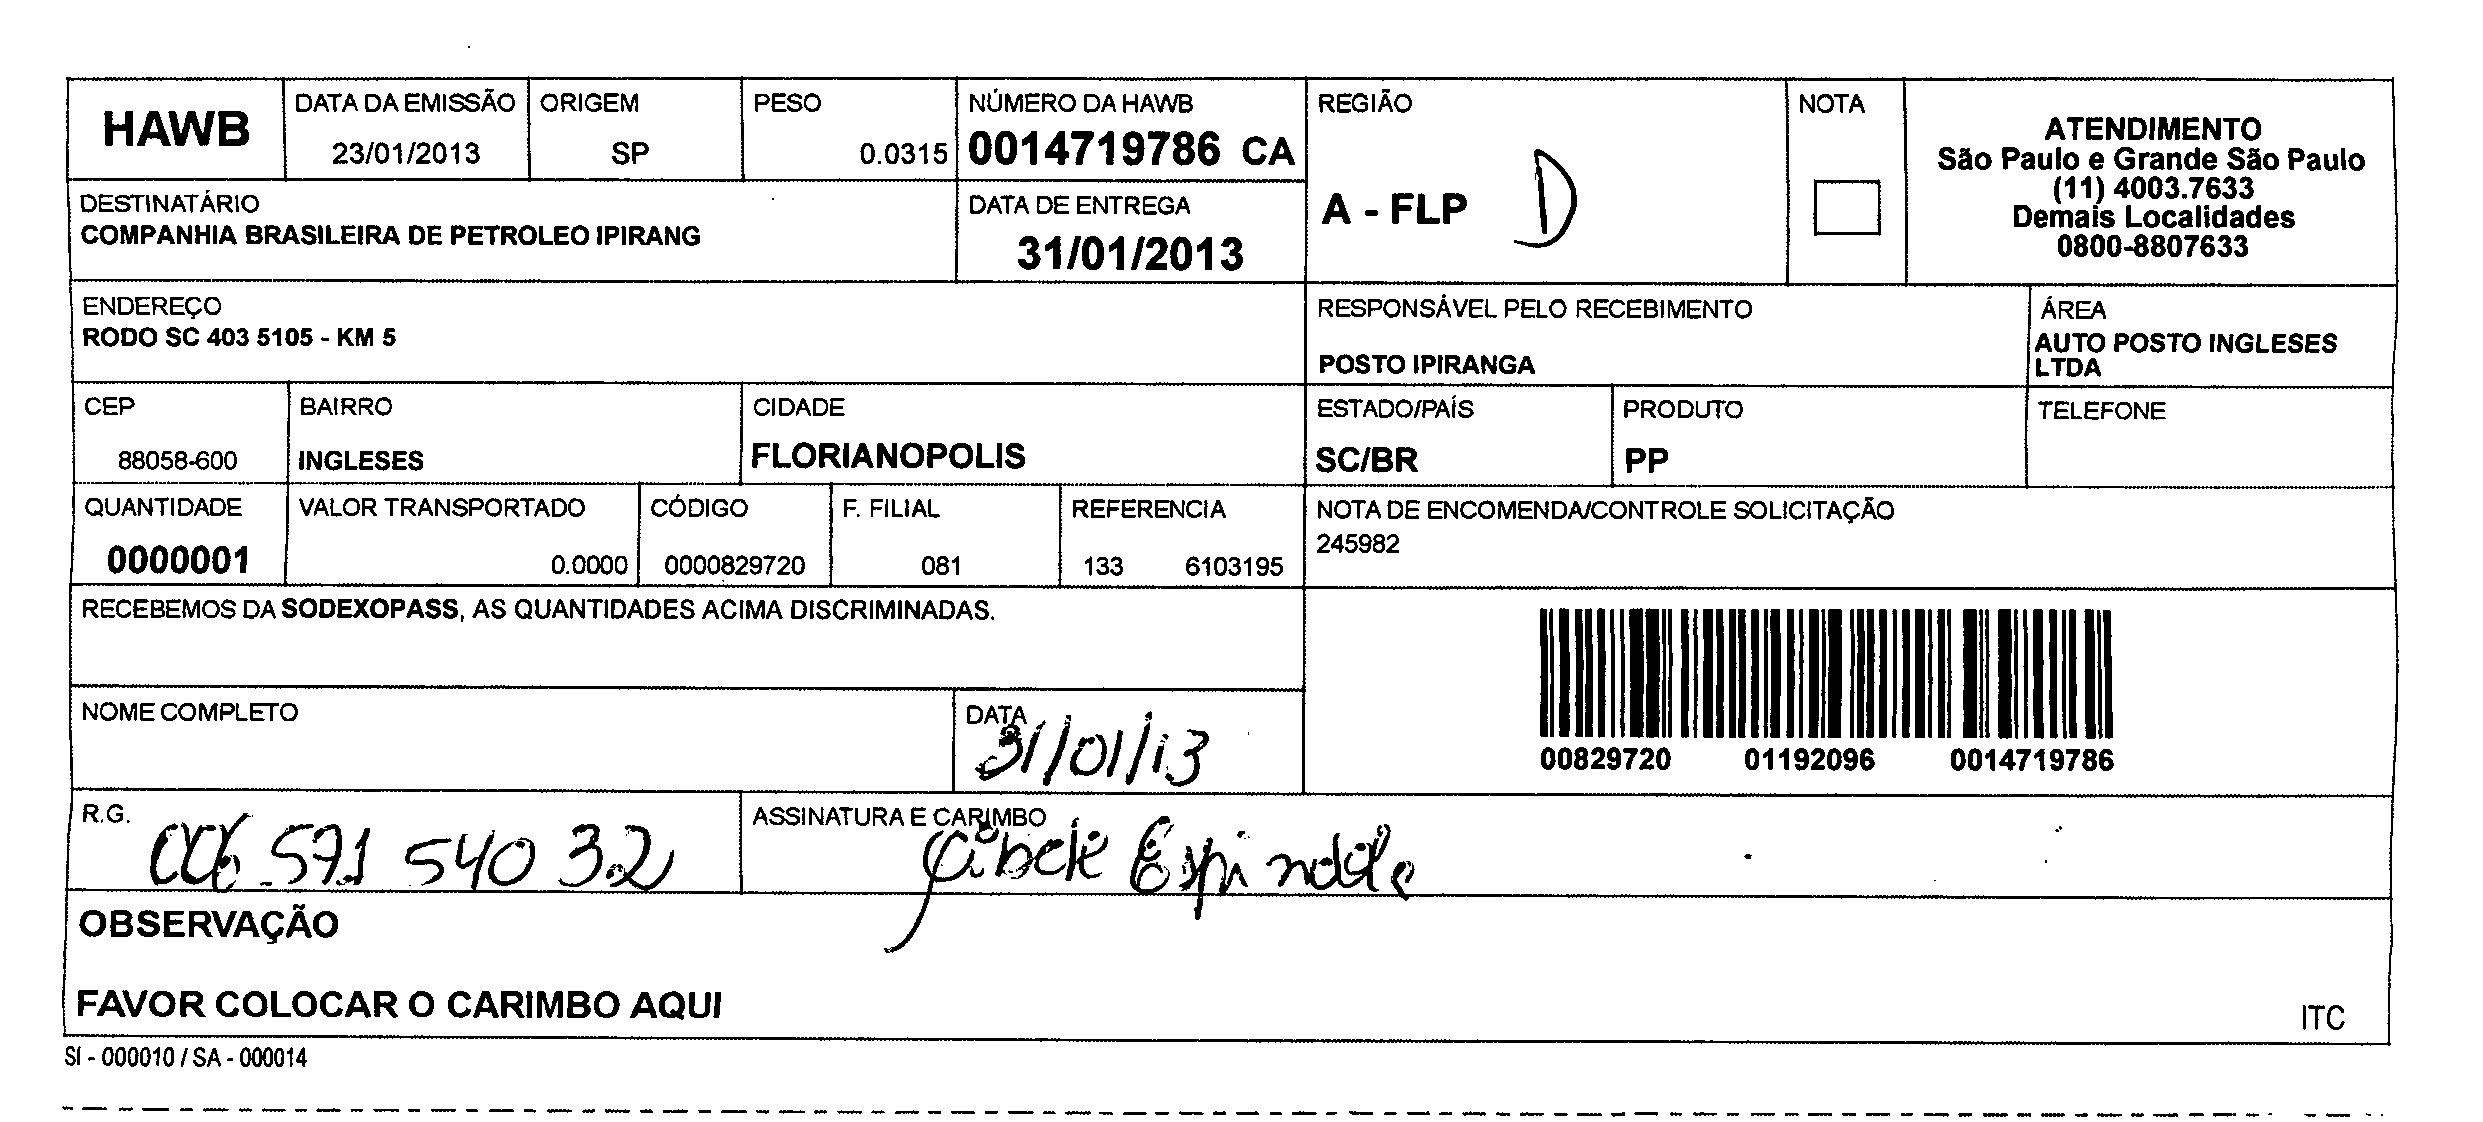 HAWB
DATA DA EMISSÃO
23/01/2013
ORIGEM
SP
PESO
0.0315
NÚMERO DA HAWB
0014719786 CA
REGIÃO
A - FLP D
NOTA
ATENDIMENTO
São Paulo e Grande São Paulo
(11) 4003.7633
Demais Localidades
0800-8807633
DESTINATÁRIO
COMPANHIA BRASILEIRA DE PETROLEO IPIRANG
DATA DE ENTREGA
31/01/2013
ENDEREÇO
RODO SC 403 5105 - KM 5
RESPONSÁVEL PELO RECEBIMENTO
POSTO IPIRANGA
ÁREA
AUTO POSTO INGLESES
LTDA
CEP
88058-600
BAIRRO
INGLESES
CIDADE
FLORIANOPOLIS
ESTADO/PAÍS
SC/BR
PRODUTO
PP
TELEFONE
QUANTIDADE
0000001
VALOR TRANSPORTADO
0.0000
CÓDIGO
0000829720
F. FILIAL
081
REFERENCIA
133 6103195
NOTA DE ENCOMENDA/CONTROLE SOLICITAÇÃO
245982
RECEBEMOS DA SODEXOPASS, AS QUANTIDADES ACIMA DISCRIMINADAS.
00829720 01192096 0014719786
NOME COMPLETO
DATA
31/01/13
R.G.
006 571 540 32
ASSINATURA E CARIMBO
Espindola
OBSERVAÇÃO
FAVOR COLOCAR O CARIMBO AQUI
ITC
SI - 000010 / SA - 000014